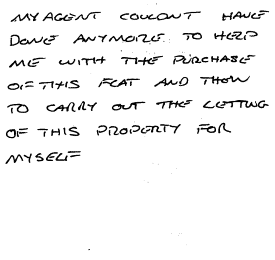 MY AGENT COULDNT HAVE
DONE ANYMORE TO HELP
ME WITH THE PURCHASE
OF THIS FLAT AND THEN
TO CARRY OUT THE LETTING
OF THIS PROPERTY FOR
MYSELF